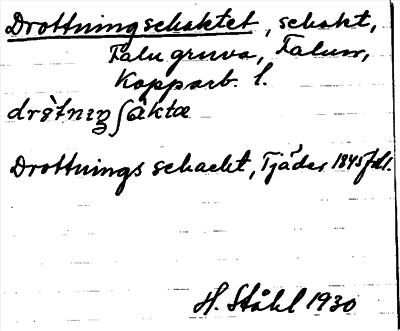 Drottningschaktet, schakt,
Falu gruva, Falun,
Kopparb. l.
Drottnings schacht, Tjäder 1845
H. Ståhl 1930